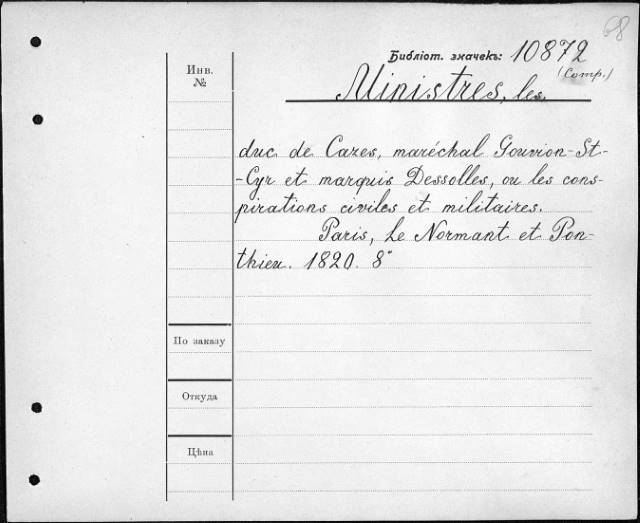 68
Библіот. значекъ: 10872
(Comp.)
Инв.
№
Ministres, les
duc de Cazes, maréchal Gouvion-St-
-Cyr et marquis Dessolles, ou les cons-
pirations civiles et militaires.
Paris, Le Normant et Pon-
thieu. 1820. 8°
По заказу
Откуда
Цѣна